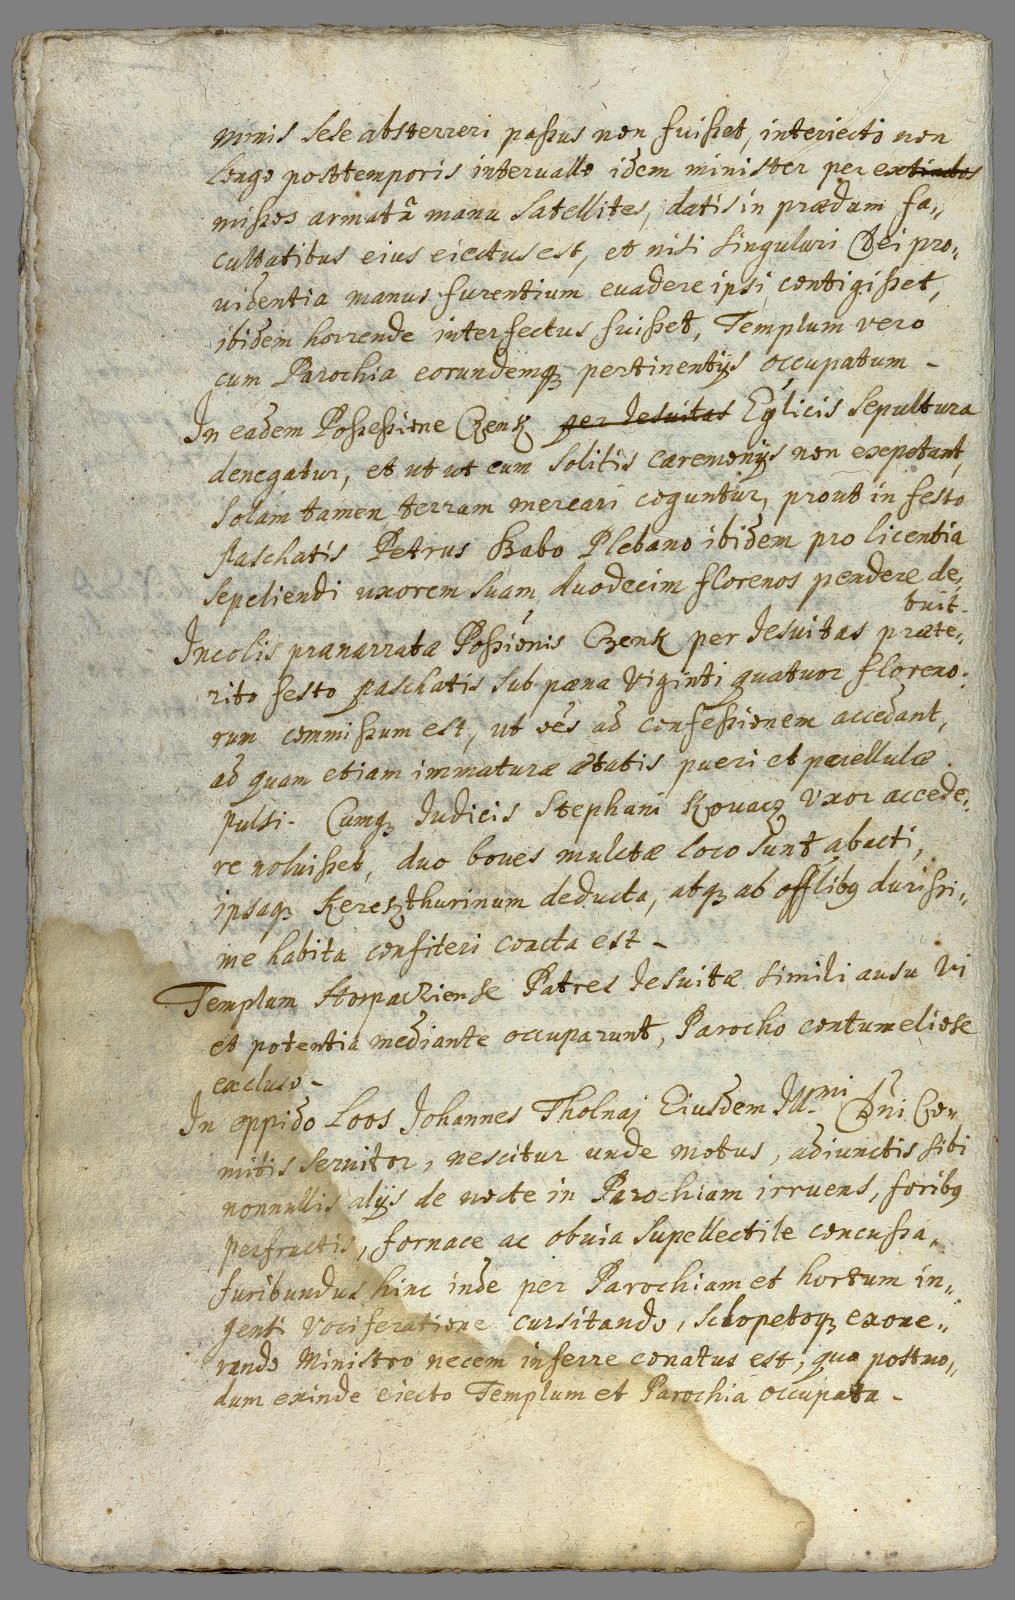 minis sese absterreri passus non fuisset, interiecto non
longo posttemporis intervallo idem minister per extiados
missos armatâ manu satellites, datis in prædam fa„
cultatibus eius eiectus est, et nisi singulari Dei pro„
uidentia manus furentium euadere ipsi contigisset,
ibidem horrende interfectus fuisset, Templum vero
cum Parochia eorundemq₃ pertinentijs occupatum -
In eadem Possessione Czenk per Iesuitas Eglicis sepultura
denegatur, et ut ut cum solitis cæremonijs non expetant,
solam tamen terram mercari coguntur, prout in festo
paschatis Petrus Szabo Plebano ibidem pro licentia
sepeliendi uxorem suam duodecim florenos pendere de„
buit.
Incolis prænarratæ Possionis Czenk per Iesuitas præte„
rito festo paschatis sub pæna Viginti quatuor floreno„
rum commissum est, ut oes ad confessionem accedant,
ad quam etiam immaturæ ætatis pueri et puellulæ
pulsi. Cumq₃ Iudicis Stephani Kouacz Vxor accede„
re noluisset, duo boues mulctæ loco sunt abacti,
ipsaq₃ Kereszthurinum deducta, atq₃ ab offlibq durissi„
me habita confiteri coacta est -
Templum Stoopachiense Patres Iesuitæ simili ausu vi
et potentia mediante occuparunt, Parocho contumeliose
excluso -
In oppido Loos Johannes Tholnaj Eiusdem Ill.mi Dni Co„
mitis seruitor, nescitur unde motus, adiunctis sibi
nonnullis alijs de nocte in Parochiam irruens, foribq
perfractis, fornace ac obuia supellectile concussa,
furibundus hinc inde per Parochiam et hortum in„
genti vociferatione cursitando, sclopetoq₃ exone„
rando Ministro necem inferre conatus est, quo postmo„
dum exinde eiecto Templum et Parochia occupata -